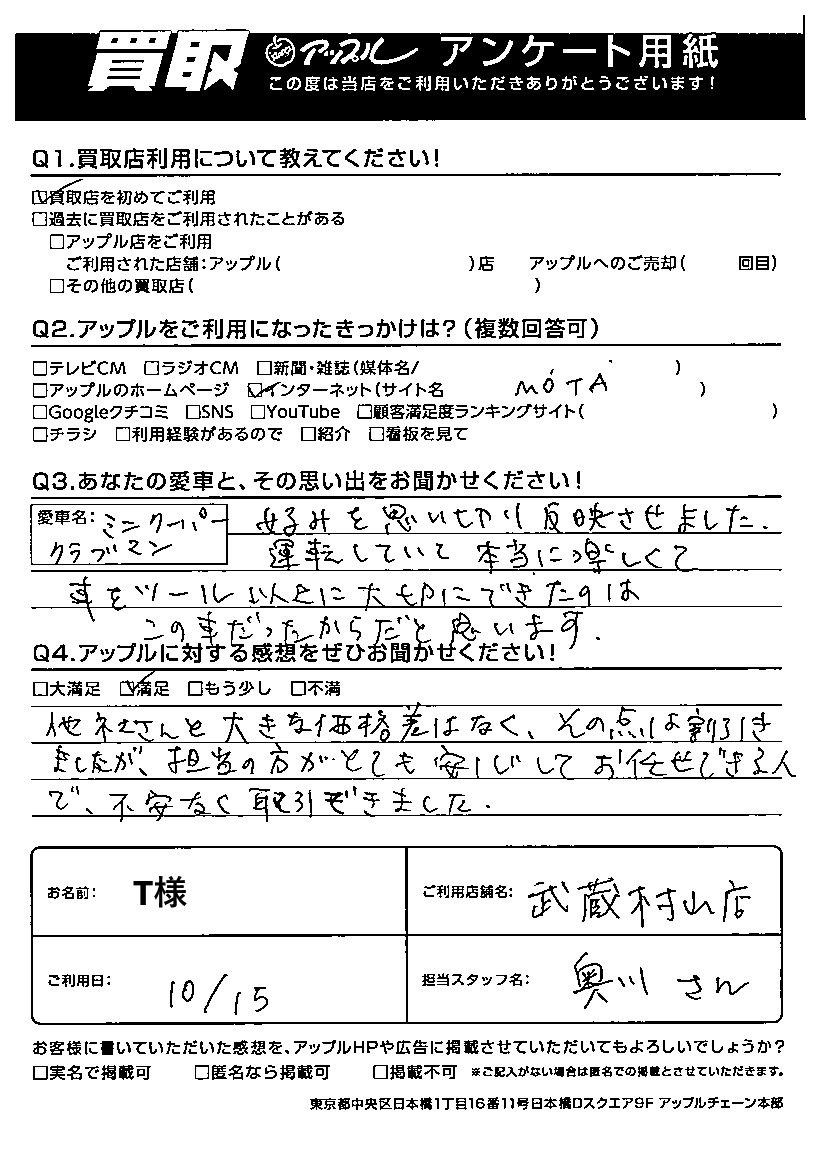 買取 アップル アンケート用紙
この度は当店をご利用いただきありがとうございます！
Q1.買取店利用について教えてください！
☑買取店を初めてご利用
□過去に買取店をご利用されたことがある
□アップル店をご利用
ご利用された店舗：アップル（ ）店 アップルへのご売却（ 回目）
□その他の買取店（ ）
Q2.アップルをご利用になったきっかけは？（複数回答可）
□テレビCM □ラジオCM □新聞・雑誌（媒体名/ ）
□アップルのホームページ ☑インターネット（サイト名 MOTA ）
□Googleクチコミ □SNS □YouTube □顧客満足度ランキングサイト（ ）
□チラシ □利用経験があるので □紹介 □看板を見て
Q3.あなたの愛車と、その思い出をお聞かせください！
愛車名：ミニクーパー 好みを思い切り反映させました．
クラブマン 運転していて本当に楽しくて
車をツール以上に大切にできたのは
この車だったからだと思います．
Q4.アップルに対する感想をぜひお聞かせください！
□大満足 ☑満足 □もう少し □不満
他社さんと大きな価格差はなく、その点は割引き
ましたが、担当の方がとても安心してお任せできる人
で、不安なく取引できました．
お名前： T様 ご利用店舗名： 武蔵村山店
ご利用日： 10/15 担当スタッフ名： 奥川さん
お客様に書いていただいた感想を、アップルHPや広告に掲載させていただいてもよろしいでしょうか？
□実名で掲載可 □匿名なら掲載可 □掲載不可 ※ご記入がない場合は匿名での掲載とさせていただきます。
東京都中央区日本橋1丁目16番11号日本橋Dスクエア9F アップルチェーン本部